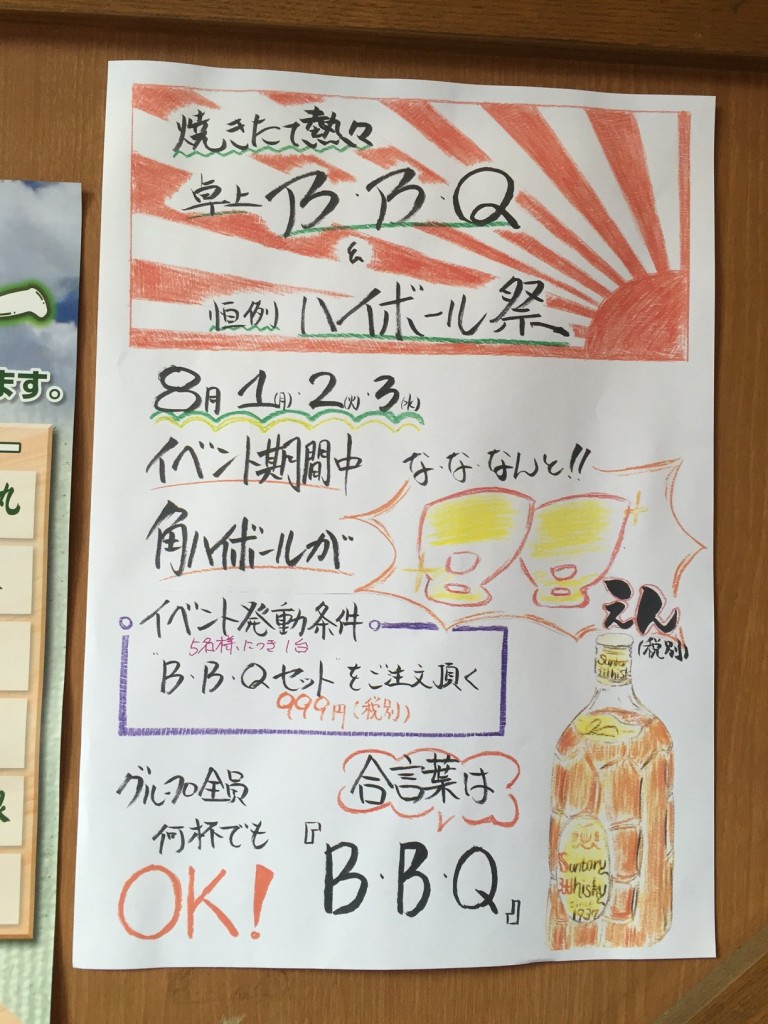 焼きたて熱々
卓上 B・B・Q
&
恒例 ハイボール祭
8月1(月)・2(火)・3(水)
イベント期間中 な・な・なんと!!
角ハイボールが
えん
(税別)
イベント発動条件
5名様につき1台
"B・B・Qセット"をご注文頂く
999円(税別)
グループ全員
何杯でも
OK!
合言葉は
『B・B・Q』
Suntory
Whisky
Since
1937
ます。
丸